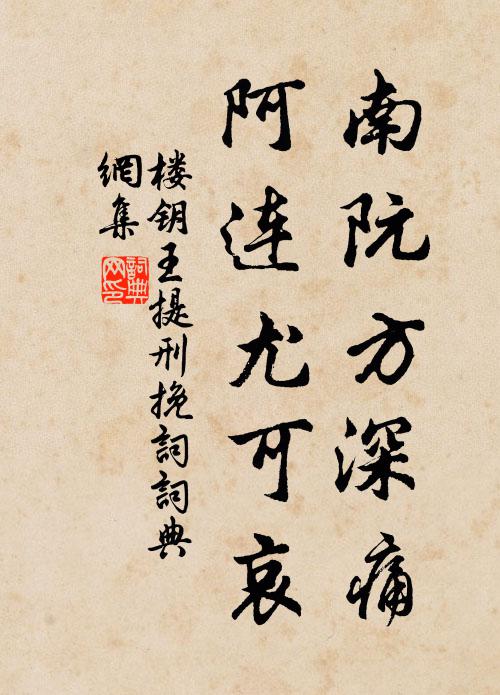 南阮方深痛
阿连尤可哀
楼钥王提刑挽詞詞典
網集
詞典网印